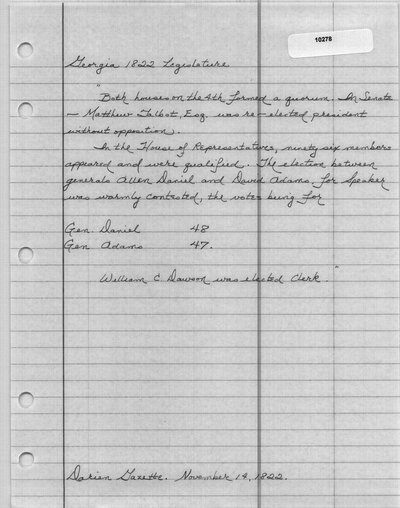 10278
Georgia 1822 Legislature
"Both houses on the 4th formed a quorum. In Senate
- Matthew Talbot, Esq. was re-elected president
without opposition.
In the House of Representatives, ninety six members
appeared and were qualified. The election between
generals Allen Daniel and David Adams, for Speaker
was warmly contested, the votes being for
Gen. Daniel 48
Gen Adams 47.
William C. Dawson was elected Clerk."
Darien Gazette. November 14, 1822.